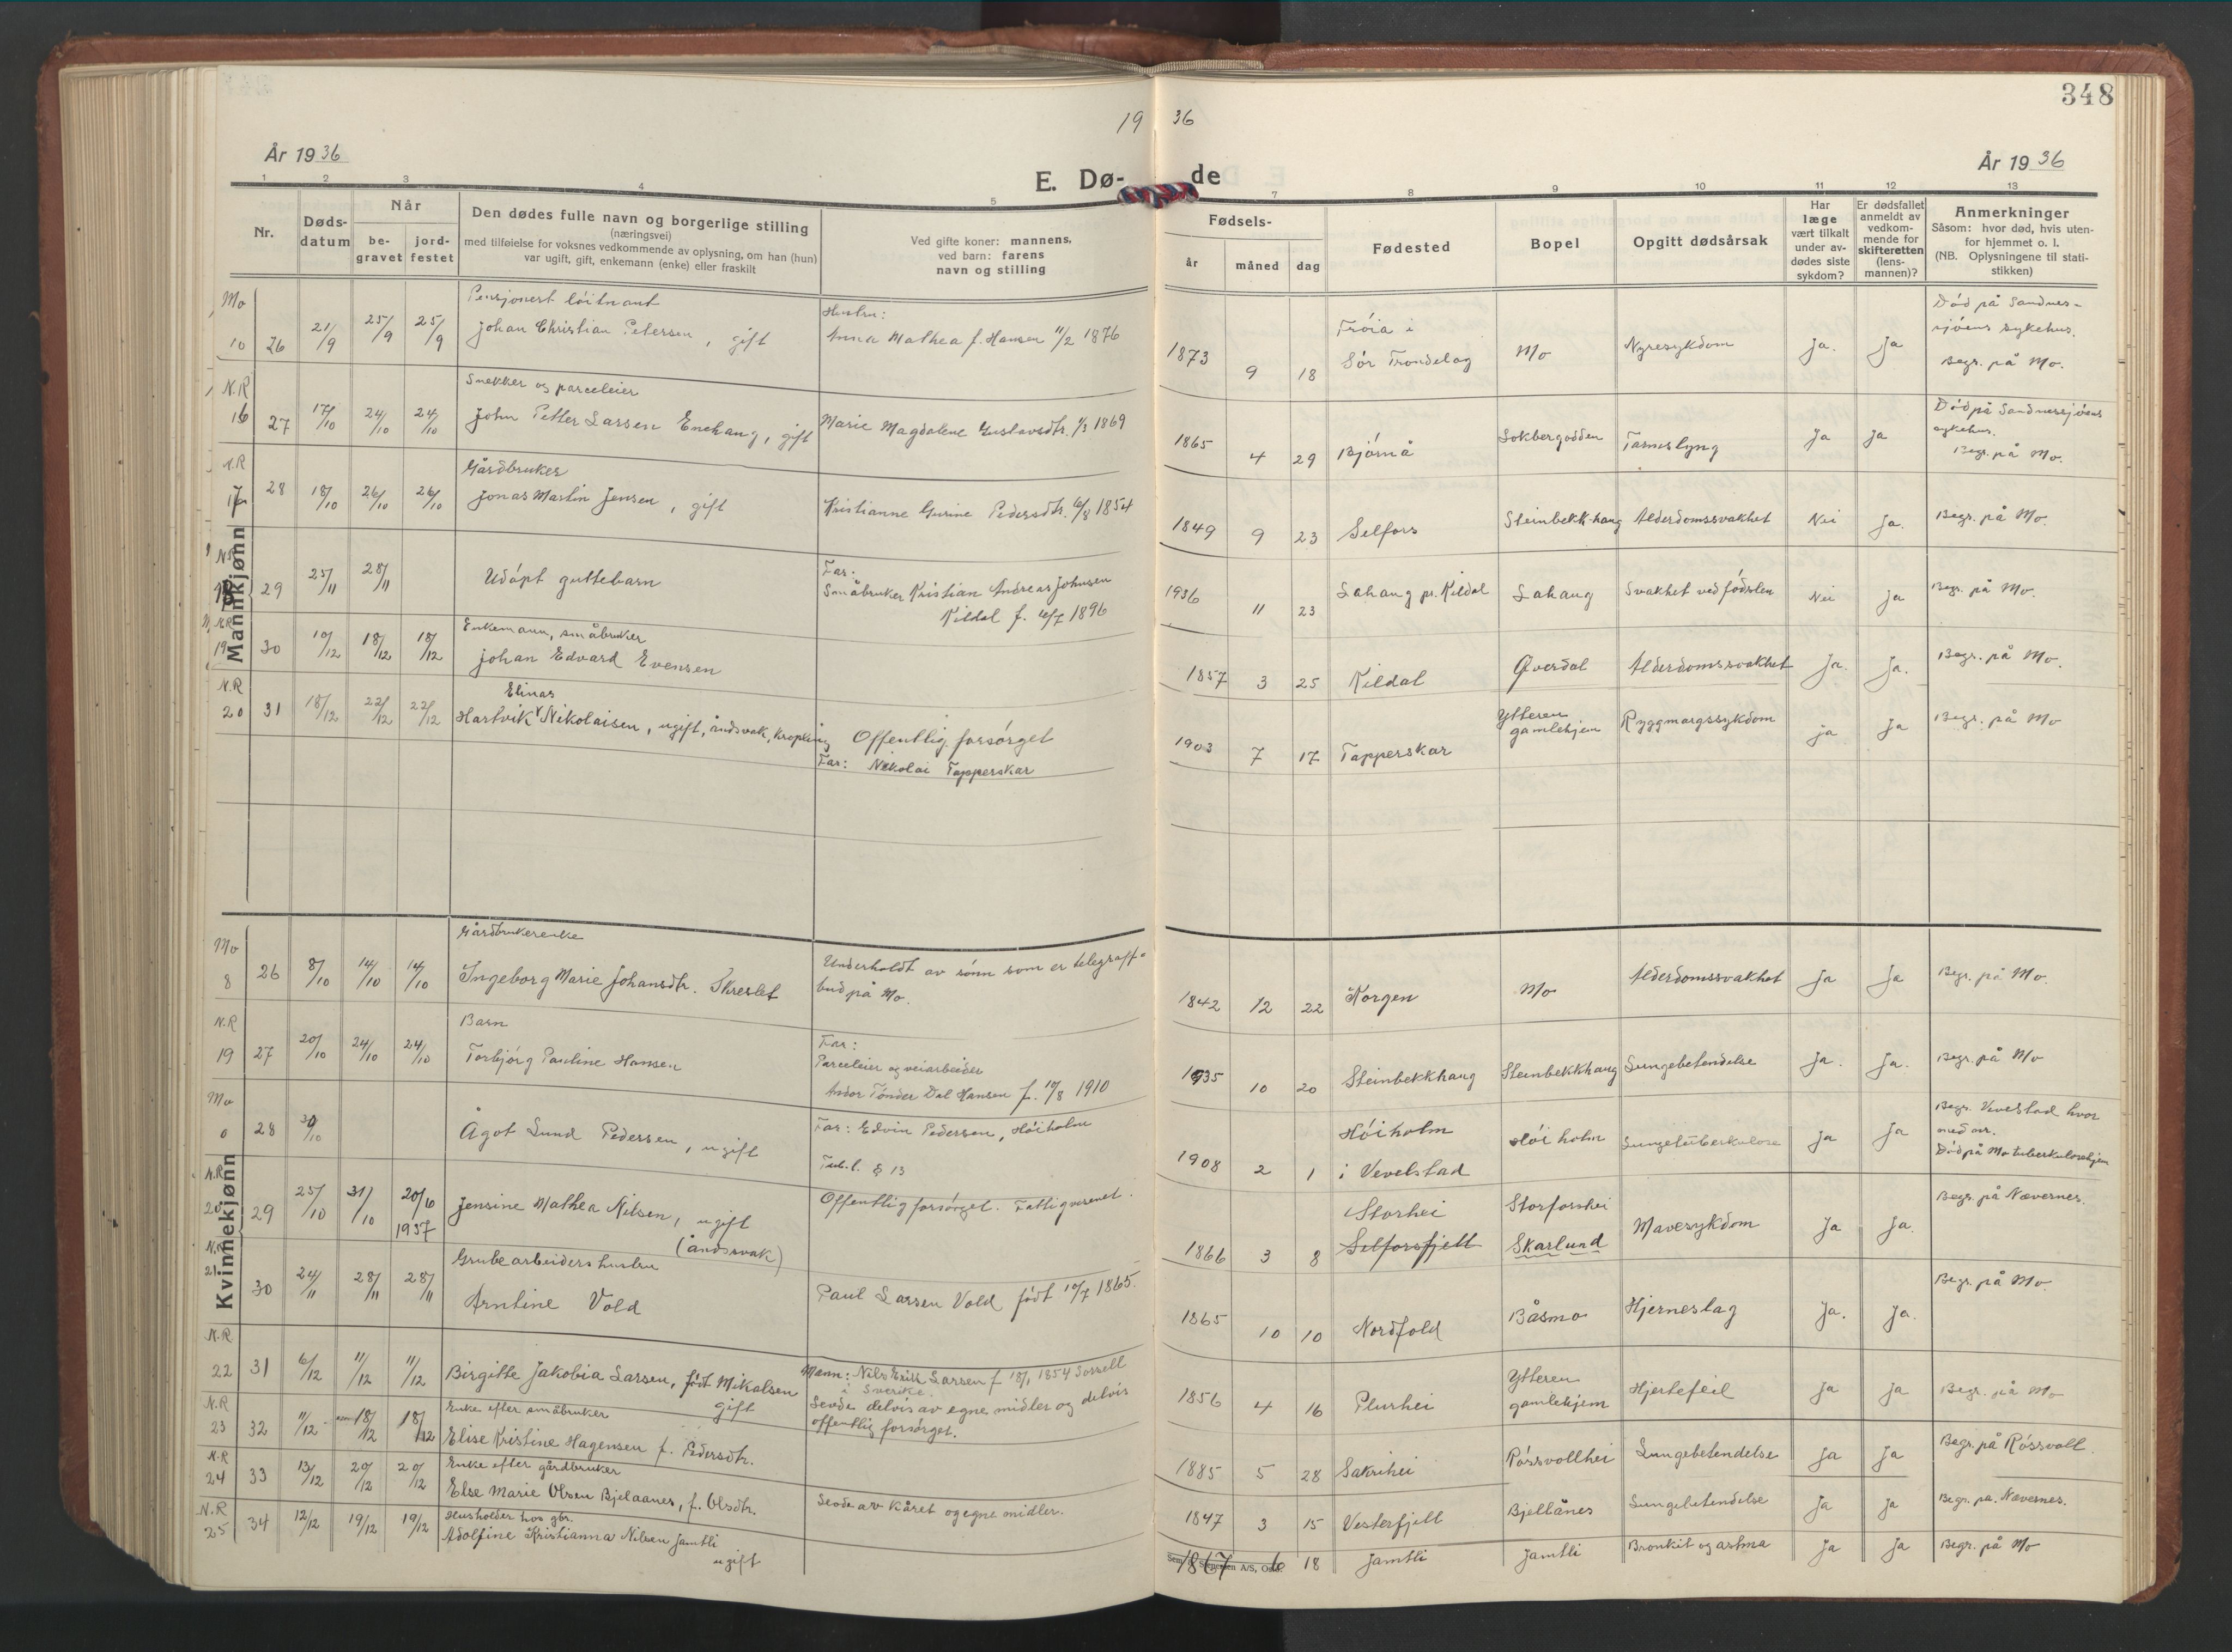 348
19 36
År 1936
År 1936
E. Dø- de
1 2 3 4 5 7 8 9 10 11 12 13
Nr.
Døds-
datum
Når
be-
gravet
jord-
festet
Den dødes fulle navn og borgerlige stilling
(næringsvei)
med tilføielse for voksnes vedkommende av oplysning, om han (hun)
var ugift, gift, enkemann (enke) eller fraskilt
Ved gifte koner: mannens,
ved barn: farens
navn og stilling
Fødsels-
år måned dag
Fødested
Bopel
Opgitt dødsårsak
Har
læge
vært tilkalt
under av-
dødes siste
sykdom?
Er dødsfallet
anmeldt av
vedkom-
mende for
skifteretten
(lens-
mannen)?
Anmerkninger
Såsom: hvor død, hvis uten-
for hjemmet o. l.
(NB. Oplysningene til stati-
stikken)
Mannkjønn
Mo
Pensjonert löitnant
Hustru:
Død på Sandnes-
sjøens sykehus.
10 26 21/9 25/9 25/9 Johan Christian Petersen, gift Anna Mathea f. Hansen 11/2 1876
1873 9 18 Frøia i
Sør Trøndelag Mo Nyresykdom Ja. Ja Begr. på Mo.
N.R
Snekker og parceleier
16 27 17/10 24/10 24/10 John Petter Larsen Enehaug, gift Marie Magdalene Gustavsdtr. 1/3 1869
1865 4 29 Bjørnå Sokbergodden Tarmslyng Ja Ja Død på Sandnessjøens
sykehus.
Begr. på Mo.
N.R
Gårdbruker
17 28 18/10 26/10 26/10 Jonas Martin Jensen, gift Kristianne Gurine Pedersdtr. 6/8 1854
1849 9 23 Selfors Steinbekkhaug Alderdomssvakhet Nei Ja. Begr. på Mo.
N.R
18 29 25/11 28/11 Udøpt guttebarn Far:
Småbruker Kristian Andreas Johnsen
Kildal f. 6/7 1896
1936 11 23 Lahaug pr. Kildal Lahaug Svakhet ved fødslen Nei Ja Begr. på Mo.
N.R
Enkemann, småbruker
19 30 10/12 18/12 18/12 Johan Edvard Evensen
1857 3 25 Kildal Øverdal Alderdomssvakhet Ja. Ja. Begr. på Mo.
N.R
Elinas
20 31 18/12 22/12 22/12 Hartvik Nikolaisen, ugift, åndsvak, krøpling Offentlig forsørget
Far: Nikolai Tapperskar
1903 7 17 Tapperskar Ytteren
gamlehjem Ryggmargssykdom ja Ja Begr. på Mo
Kvinnekjønn
Mo
Gårdbrukerenke
8 26 8/10 14/10 14/10 Ingeborg Marie Johansdtr. Skreslet Underholdt av sønn som er telegraff-
bud på Mo.
1842 12 22 Korgen Mo Alderdomssvakhet Ja Ja Begr. på Mo.
N.R
Barn
19 27 20/10 24/10 24/10 Torbjørg Pauline Hansen Far:
Parceleier og veiarbeider
Andor Tønder Dal Hansen f. 10/8 1910
1935 10 20 Steinbekkhaug Steinbekkhaug Lungebetendelse Ja. Ja. Begr. på Mo
Mo
28 30/10 Ågot Lund Pedersen, ugift Far: Edvin Pedersen, Høiholm
Tub.l. § 13
1908 2 1 Høiholm
i Vevelstad Høiholm Lungetuberkulose Ja Ja Begr. Vevelstad hvor
Død på Mo tuberkulosehjem
N.R
20 29 25/10 31/10 20/6
1937 Jensine Mathea Nilsen, ugift
(åndssvak) Offentlig forsørget. Fattigvesenet.
1866 3 8 Storhei
Selforsfjell Storforshei
Skarlund Mavesykdom Ja Ja. Begr. på Nævernes.
N.R
Grubearbeiders hustru
21 30 24/11 28/11 28/11 Arntine Vold Paul Larsen Vold født 10/7 1865.
1865 10 10 Nordfold Båsmo Hjerneslag Ja. Ja. Begr. på Mo.
N.R
22 31 6/12 11/12 11/12 Birgitte Jakobia Larsen, født Mikalsen
gift Mann: Nils Erik Larsen f 18/1 1854 Sorsell
i Sverike.
1856 4 16 Plurhei Ytteren
gamlehjem Hjertefeil Ja Ja Begr. på Mo
N.R
Enke efter småbruker
23 32 11/12 18/12 18/12 Elise Kristine Hagensen f. Pedersdtr. Levde delvis av egne midler og delvis
offentlig forsørget.
1885 5 28 Sakrihei Røssvollhei Lungebetendelse Ja Ja Begr. på Røssvoll.
N.R
Enke efter gårdbruker
24 33 13/12 20/12 20/12 Else Marie Olsen Bjelaanes, f. Olsdtr. Levde av kåret og egne midler.
1847 3 15 Vesterfjell Bjellånes Lungebetendelse Ja Ja Begr. på Nævernes.
N.R
Husholder hos gbr.
25 34 12/12 19/12 19/12 Adolfine Kristianna Nilsen Jamtli
ugift
1867 6 18 Jamtli Jamtli Bronkit og astma Ja Ja Begr. på Mo